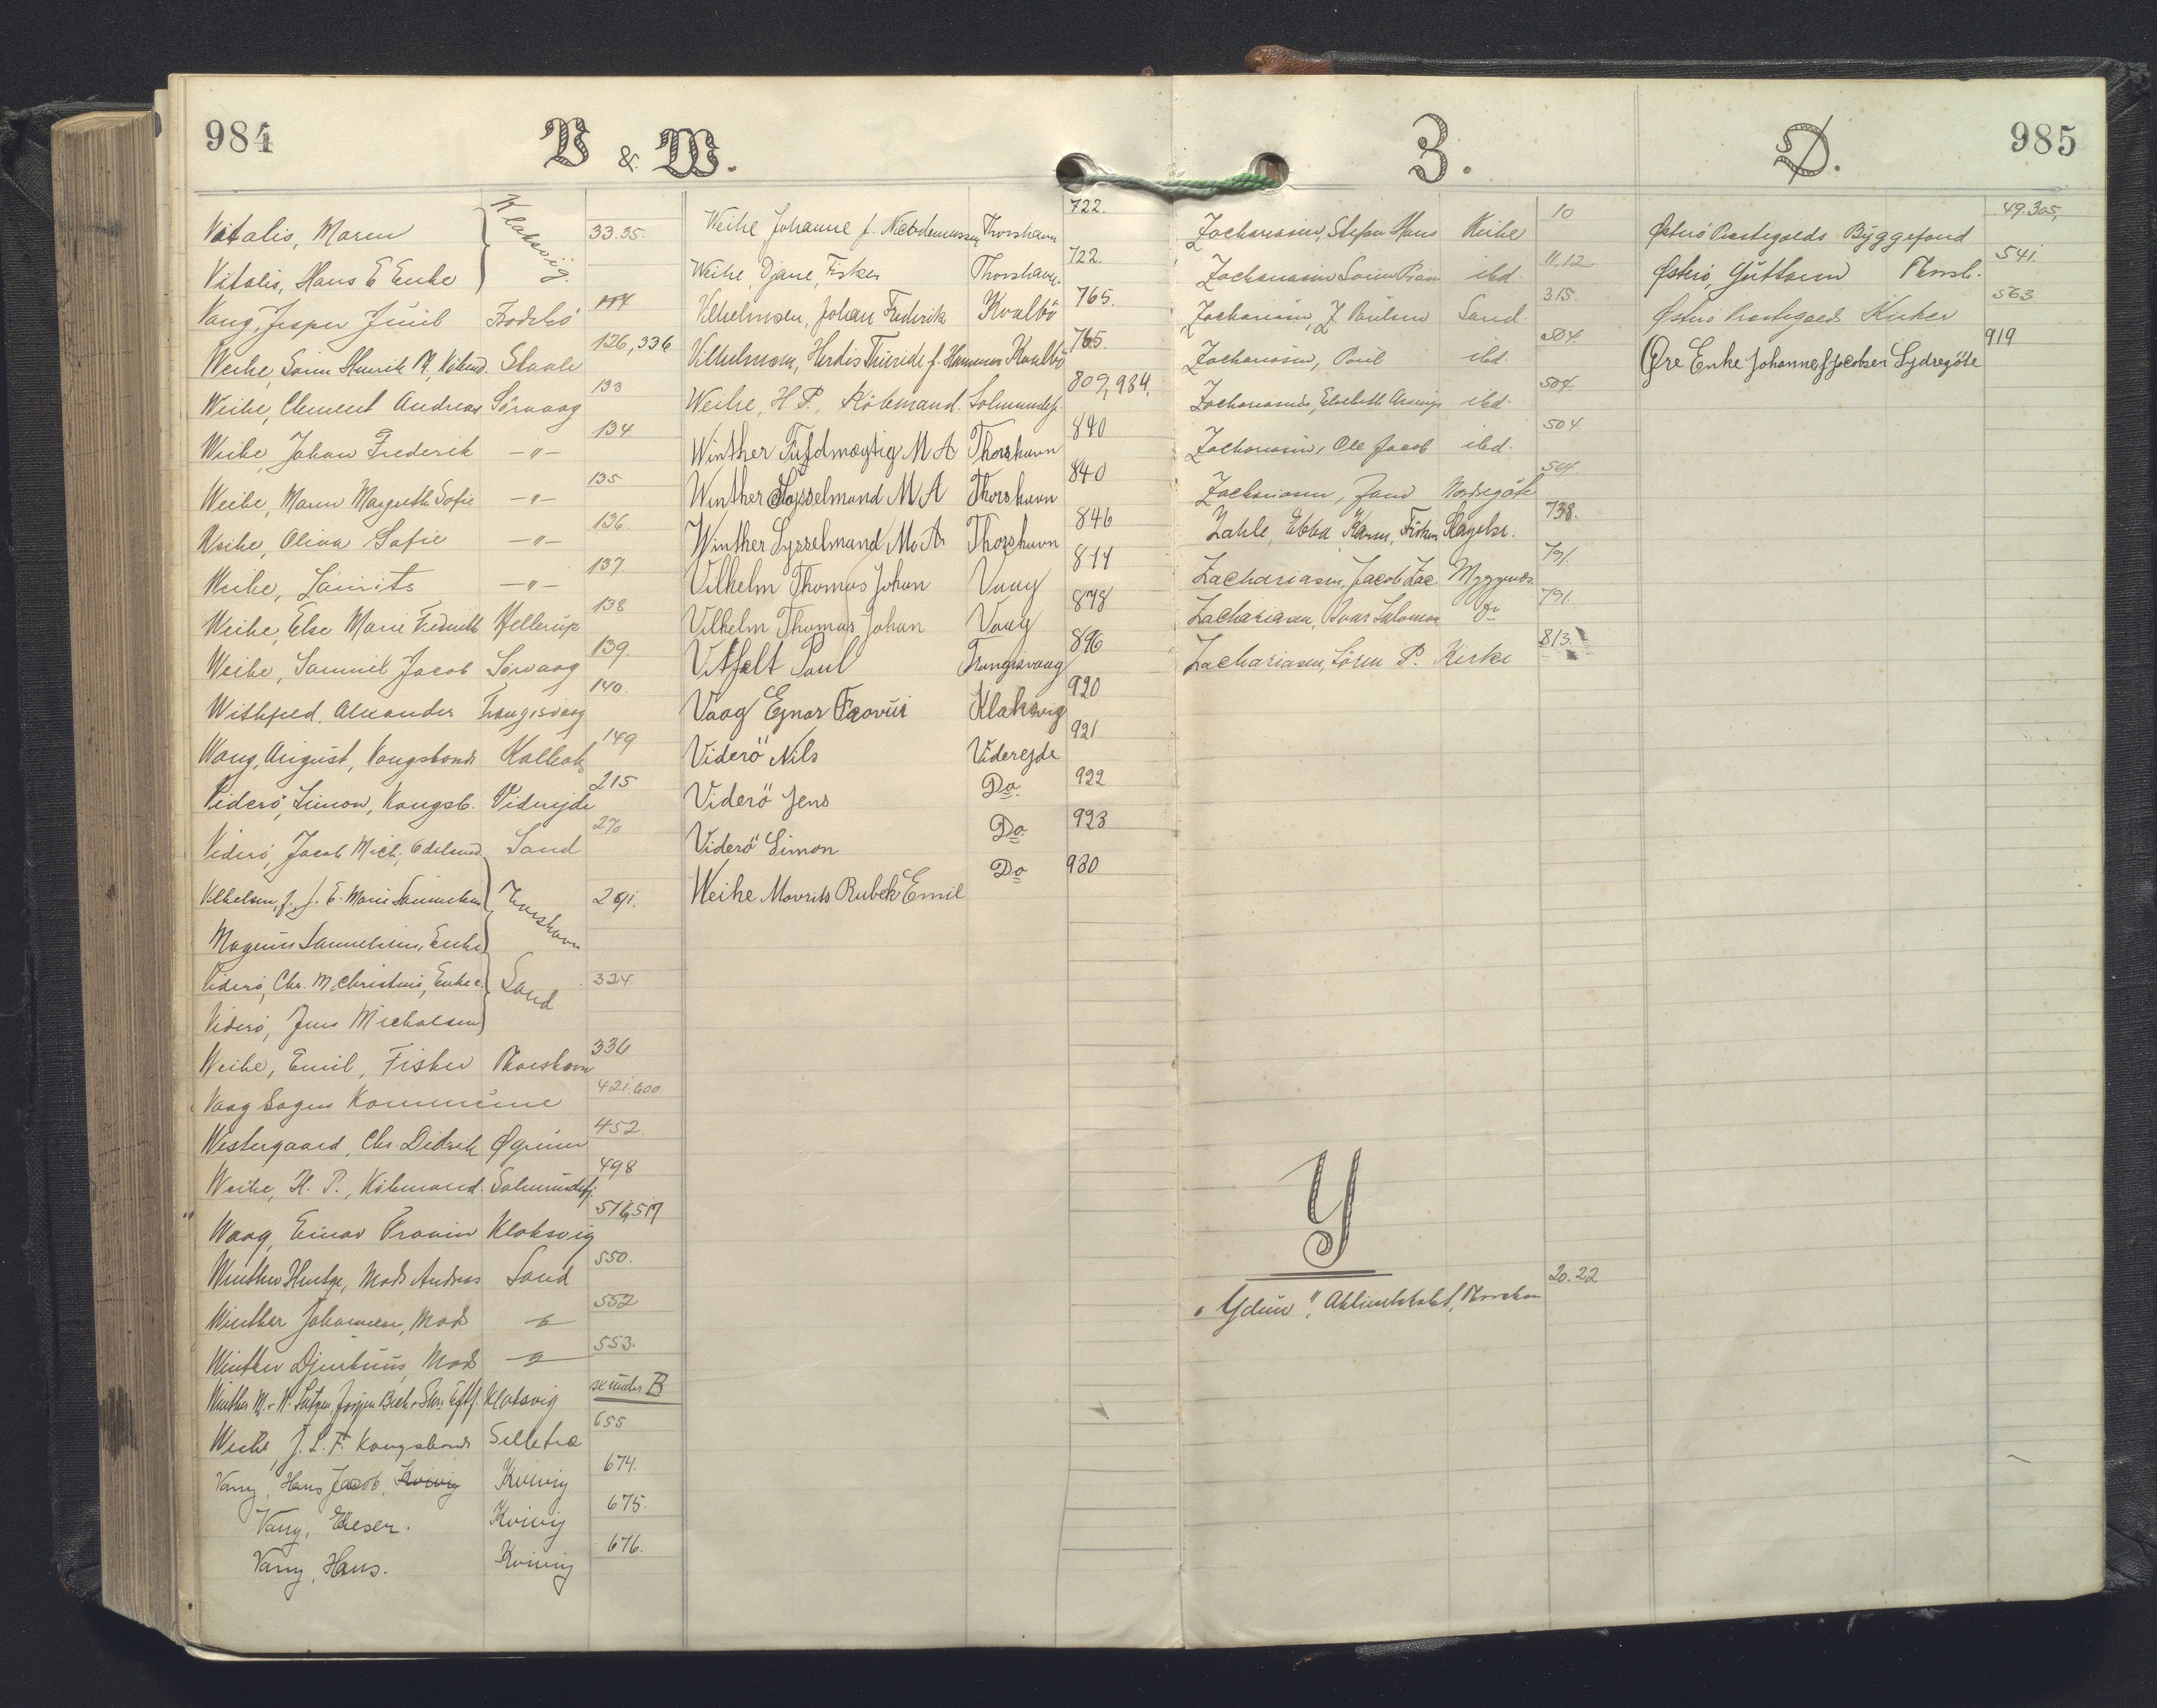 984
V & W.
Vitalis, Maren Klaksvig 33.35.
Vitalis, Hans E Enke
Vang, Jesper Juul Frodebö 114
Weihe, Sörin Henrik M, Köbmd. Skaale 126,336
Weihe, Clement Andreas Sörvaag 133
Weihe, Johan Frederik -"- 134
Weihe, Maren Margrethe Sofie -"- 135
Weihe, Oliva Sofie -"- 136.
Weihe, Laurits -"- 137.
Weihe, Else Marie Fredrikke Hellerup 138
Weihe, Samuel Jacob Sörvaag 139.
Withfeld. Alexander Trangisvaag 140.
Wang, August, Kongsbonde Kollen 149
Viderö, Simon, Kongsb. Viderejde 215
Viderö, Jacob Mich, Odelsmd. Sand 270
Vilhelsen f. J. E. Marie Samuelsen Thorshavn 291.
Magnus Samuelsens, Enke
Viderö, Chr. M. Christine, Enke e. Sand 324.
Viderö, Jens Michalsen
Weihe, Emil, Fisker Thorshavn 336
Vaag Sogns Kommune 421.600
Westergaard, Chr. Didrik Øgrim 452.
Weihe, H. P., Köbmand. Solmundefj. 498
Waag, Einar Provin Klaksvig 516,517
Winther Hentze, Mads Andreas Sand 550.
Winther Johannesen, Mads -"- 552
Winther Djurhuus, Mads -"- 553.
Winther M. & N. Lützen, Jörgen Bech & Söns Eftf. Klaksvig se under B
Weihe, J. L. F. Kongsbonde Selletræ 655
Vang, Hans Jacob, Kvivig Kvivig 674.
Vang, Elieser. Kvivig 675.
Vang, Hans. Kvivig 676.
Weihe Johanne f. Nicodemussen Thorshavn 722.
Weihe, Djane, Fisker Thorshavn. 722.
Vilhelmsen, Johan Frederik Kvalbö 765.
Vilhelmsen, Herdis Thuride f. Hammer Kvalbö 765.
Weihe, H P., Köbmand. Solmundefj. 809,984.
Winther Fuldmægtig M A Thorshavn 840
Winther Sysselmand M A Thorshavn 840
Winther Sysselmand M. A. Thorshavn 846
Vilhelm Thomas Johan Vaag 844
Vilhelm Thomas Johan Vaag 878
Vitfelt Paul Trangisvaag 896
Vaag Ejnar Provin Klaksvig 920
Viderö Nils Viderejde 921
Viderö Jens Do. 922
Viderö Simon Do. 923
Weihe Mourits Rubek Emil Do 930
Z. Ø. 985
Zachariasen, Stefan Hans Kirke 10
Zachariasen Sörin Pram ibd. 11.12
Zachariasen, J. Poulsen Sand. 315.
Zachariasen, Poul ibd. 504.
Zachariasen, Elsebeth ibd. 504.
Zachariasen, Ole Jacob ibd. 504.
Zachariasen, Zand Nordregöte 504.
Zahle, Ebba Karen, Fröken Slagelse. 738.
Zachariasen, Jacob Zac. Myggenæs 791.
Zachariasen, Ivar Salomon Do 791.
Zachariasen, Sören P. Kirke 813.
Y
"Ydun", Aktieselskabet, Thorshavn 20.22
Østerö Præstegælds Byggefond 49.305,
Østerö, Guttorm Thorsh. 541.
Østerö Præstegælds Kirker 563
Øre Enke Johanne f Jacobsen Sydregöte 919